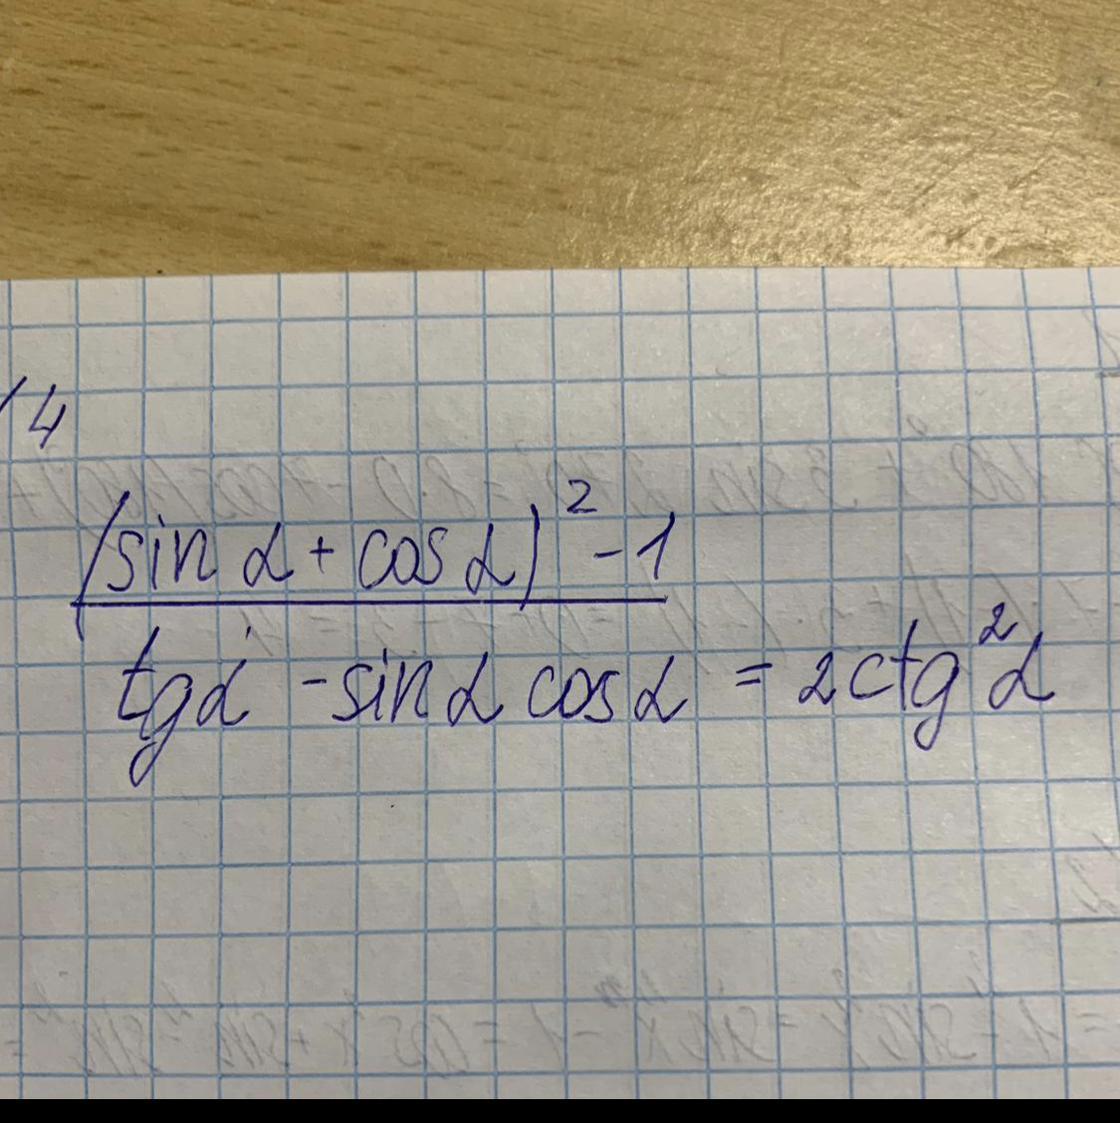 14
(sin α + cos α)² - 1
tgα - sin α cos α = 2 ctg²α